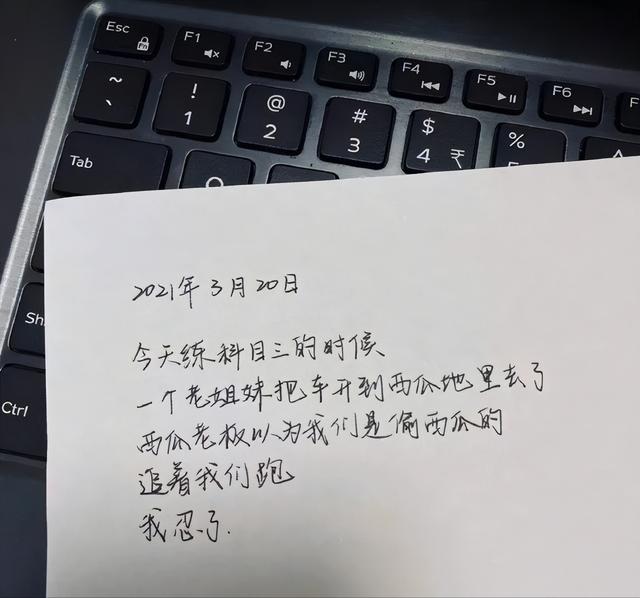 Esc F1 F2 F3 F4 F5 F6 F
~ ! @ # $ %
` 1 2 3 4 ₹
Tab
2021年3月20日
今天练科目三的时候
一个老姐妹把车开到西瓜地里去了
Sh
西瓜老板以为我们是偷西瓜的
Ctrl
追着我们跑
我忍了.